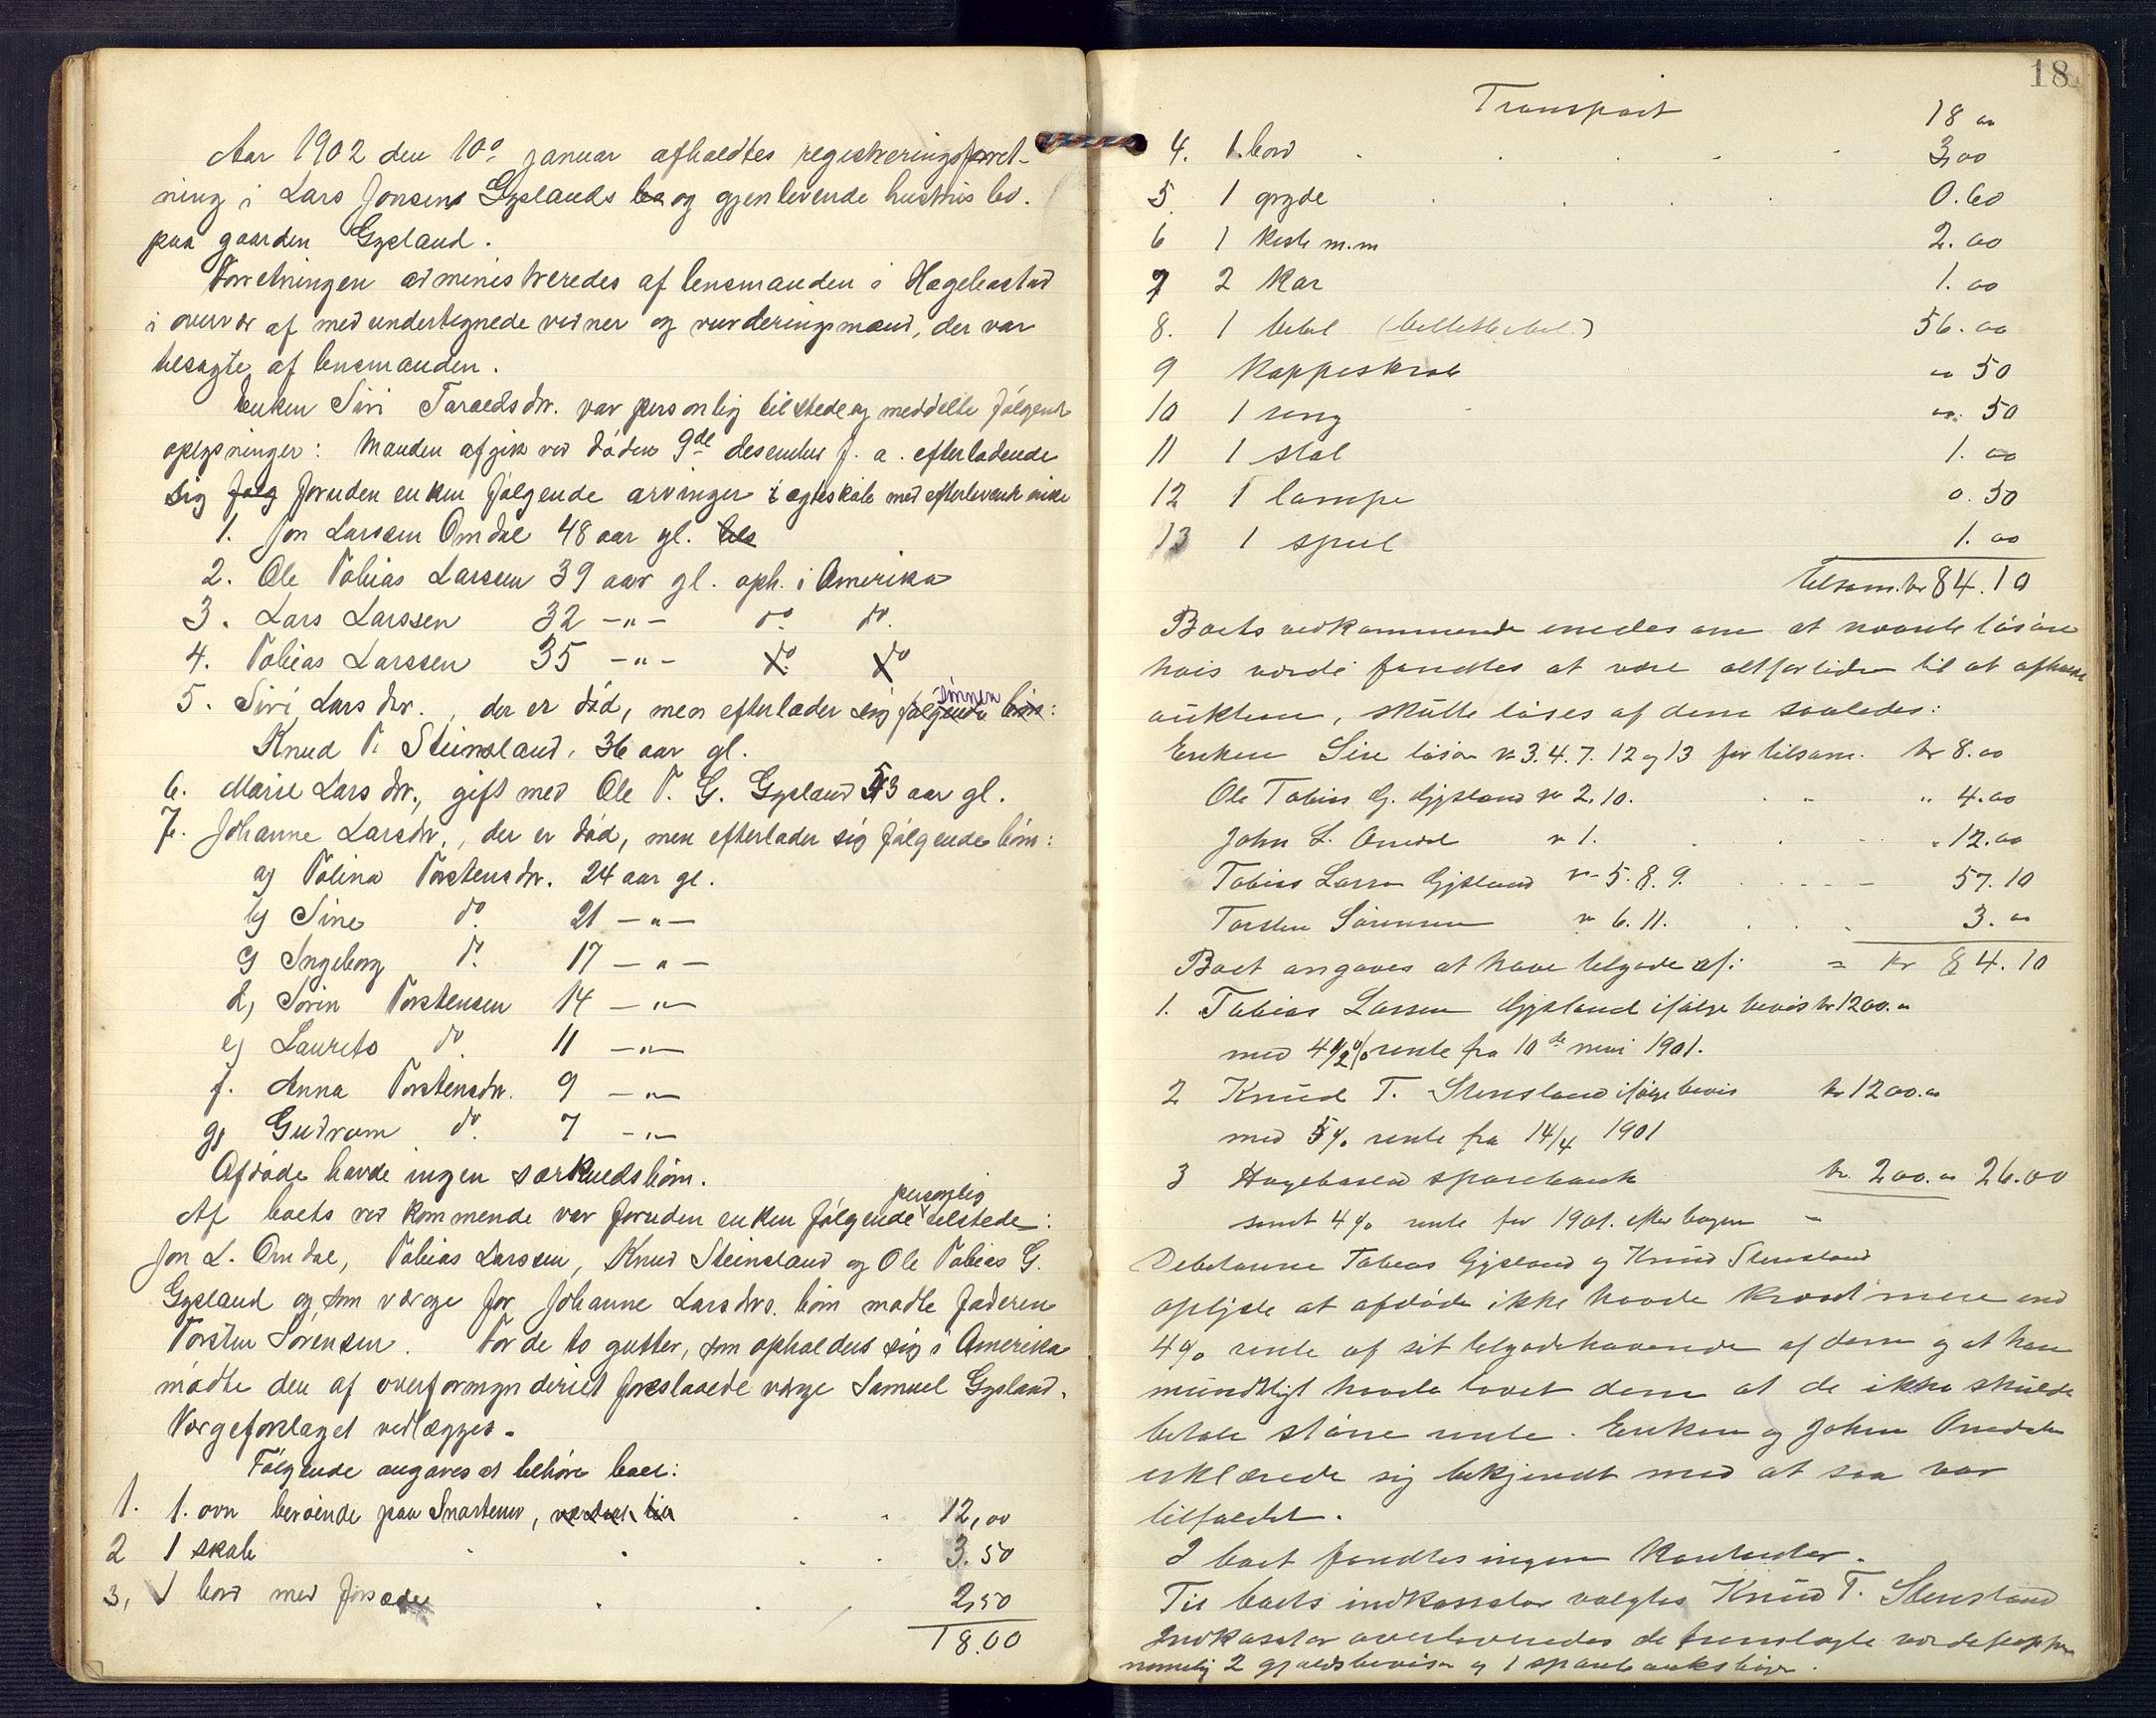 Aar 1902 den 10de januar afholdtes registreringsforret-
ning i Lars Jonsens Gyslands bo og gjenlevende hustrus bo.
paa gaarden Gysland.
Forretningen administreredes af lensmanden i Hægebostad
i overvær af medundertegnede vidner og vurderingsmænd, der var
tilsagte af lensmanden.
Enken Siri Taraldsdtr. var personlig tilstede og meddelte følgende
oplysninger: Manden afgik ved døden 9de desember f. a. efterladende
sig følg foruden enken følgende arvinger i ægteskab med efterlevende enke
1. Jon Larssen Omdal 48 aar gl.
2. Ole Tobias Larssen 39 aar gl. oph. i Amerika
3. Lars Larssen 32 -"- do. do.
4. Tobias Larssen 35 -"- do. do
5. Siri Larsdtr., der er død, men efterlader sig følgende sønnen børn:
Knud T. Steinsland, 36 aar gl.
6. Marie Larsdtr., gift med Ole T. G. Gysland 53 aar gl.
7. Johanne Larsdtr., der er død, men efterlader sig følgende børn:
a) Tolina Torstensdtr. 24 aar gl.
b) Sine do. 21 -"-
c) Ingeborg do. 17 -"-
d) Sørin Torstensen 14 -"-
e) Laurits do. 11 -"-
f. Anna Torstensdtr. 9 -"-
g) Gudrom do. 7 -"-
Afdøde havde ingen særkuldsbørn.
Af boets vedkommende var foruden enken følgende personlig tilstede:
Jon L. Omdal, Tobias Larssen, Knud Steinsland og Ole Tobias G.
Gysland og som værge for Johanne Larsdtrs. børn mødte faderen
Torsten Sørensen. For de to gutter, som opholder sig i Amerika
mødte den af overformynderiet foreslaaede værge Samuel Gysland.
Værgeforslaget vedlægges.
Følgende angaves at tilhøre boet:
1. 1. ovn beroende paa Snartemo, værdsat til 12,00
2 1 skab 3.50
3, 1 bord med forsæde 2,50
18.00
18
Transport 18 00
4. 1. bord 3,00
5 1 gryde 0.60
6 1 kiste m.m 2.00
7 2 kar 1.00
8. 1 bibel (billedbibel) 56.00
9 Koppeskrab 00 50
10 1 seng 00. 50
11 1 stol 1.00
12 1 lampe 0.50
13 1 speil 1.00
tilsam. kr 84.10
Boets vedkommende enedes om at nævnte løsøre
hvis værdi fandtes at være altfor liden til at afholde
auktion, skulle løses af dem saaledes:
Enken Sire løser No 3. 4. 7. 12 og 13 for tilsam. kr 8.00
Ole Tobias G. Gysland No 2. 10. " 4.00
John L. Omdal No 1. " 12.00
Tobias Larsen Gysland No 5. 8. 9. 57.10
Torsten Sørensen No 6. 11. 3.00
Boet angaves at have tilgode af: = kr 84.10
1. Tobias Larssen Gysland ifølge bevis kr 1200.00
med 4 1/2 % rente fra 10de mai 1901.
2 Knud T. Stensland ifølge bevis kr 1200.00
med 5 % rente fra 14/4 1901
3 Hægebostad sparebank kr. 200.00 26.00
samt 4 % rente for 1901. efter bogen -
Debitorerne Tobias Gysland og Knud Stensland
oplyste at afdøde ikke havde krævet mere end
4 % rente af sit tilgodehavende af dem og at han
mundtligt havde lovet dem at de ikke skulde
betale større rente. Enken og John Omdal
erklærede sig bekjendt med at saa var
tilfældet.
I boet fandtes ingen kontanter.
Til boets indkassator valgtes Knud T. Stensland
Indkassator overleveredes de fremlagte værdipapirer
nemlig 2 gjældsbeviser og 1 sparebanksbog.